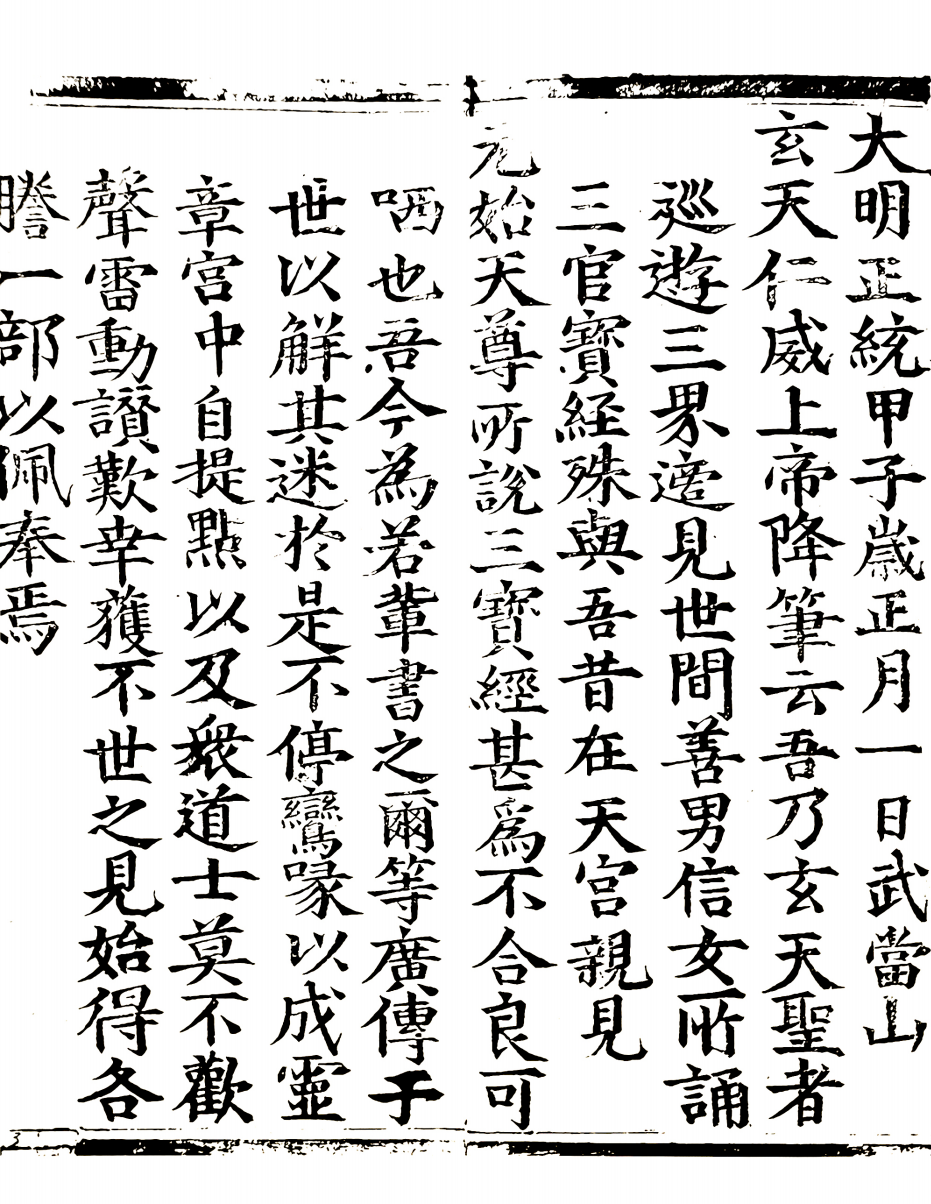 大明正統甲子歲正月一日武當山
玄天仁威上帝降筆云吾乃玄天聖者
巡遊三界遶見世間善男信女所誦
三官寶経殊與吾昔在天宮親見
元始天尊所說三寶經甚為不合良可
哂也吾今為若輩書之爾等廣傳于
世以解其迷於是不停鸞喙以成靈
章宮中自提點以及衆道士莫不歡
聲雷動讃歎幸獲不世之見始得各
謄一部以佩奉焉